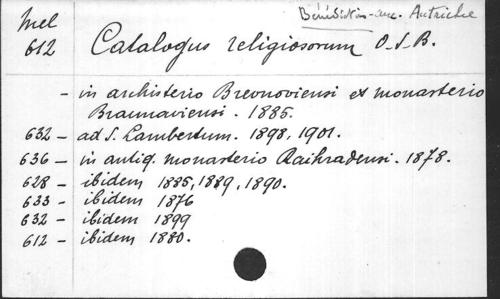 Bénédictin-aux. Autriche
Mel
612 Catalogus religiosorum O.S.B.
- in archisterio Brevnoviensi et monasterio
Braunaviensi. 1885.
632 - ad S. Lambertum. 1898, 1901.
636 - in antiq. monasterio Raihradensi. 1878.
628 - ibidem 1885, 1889, 1890.
633 - ibidem 1876
632 - ibidem 1899
612 - ibidem 1880.